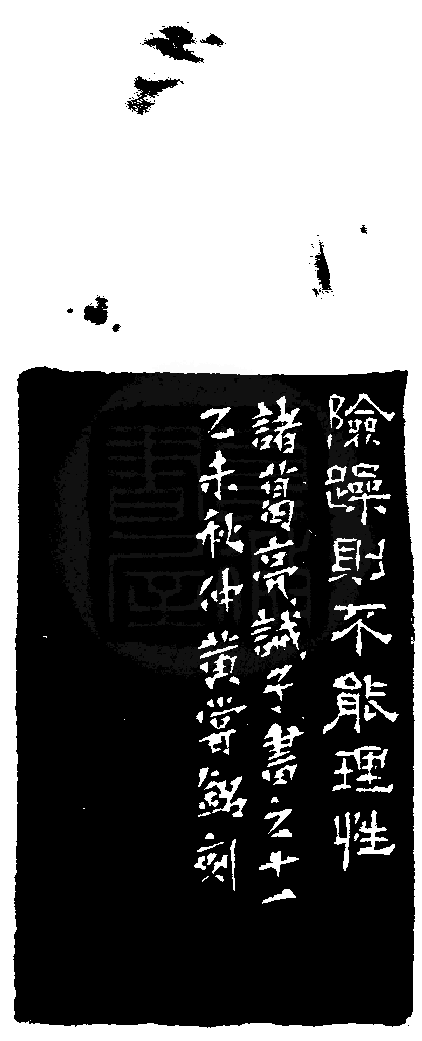 險躁則不能理性
諸葛亮誡子書之十一
乙未秋仲黃嘗銘刻